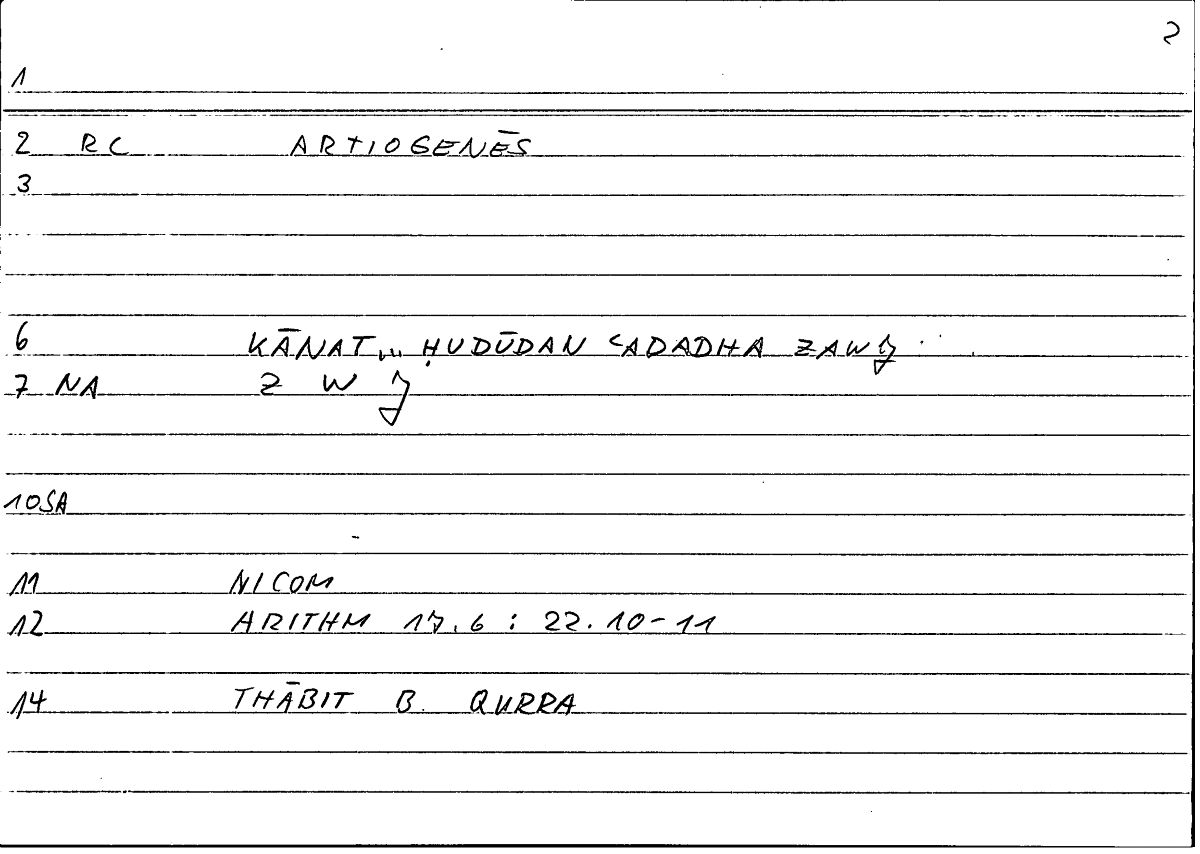 2
1
2 RC ARTIOGENĒS
3
6 KĀNAT... ḤUDŪDAN ʿADADHA ZAWǦ
7 NA Z W Ǧ
10 SA
11 NICOM
12 ARITHM 17.6 : 22.10-11
14 THĀBIT B. QURRA